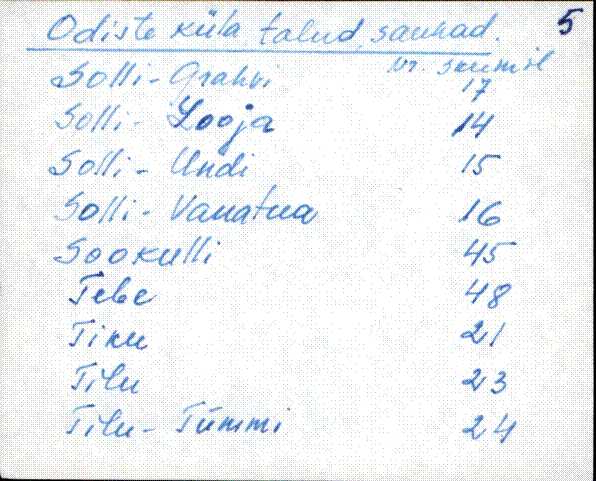 Odiste küla talud, saunad. 5
nr. skeemil
Solli-Grahvi 17
Solli-Looja 14
Solli-Undi 15
Solli-Vanatua 16
Sookulli 45
Tebe 48
Tiku 21
Tilu 23
Tilu-Tümmi 24